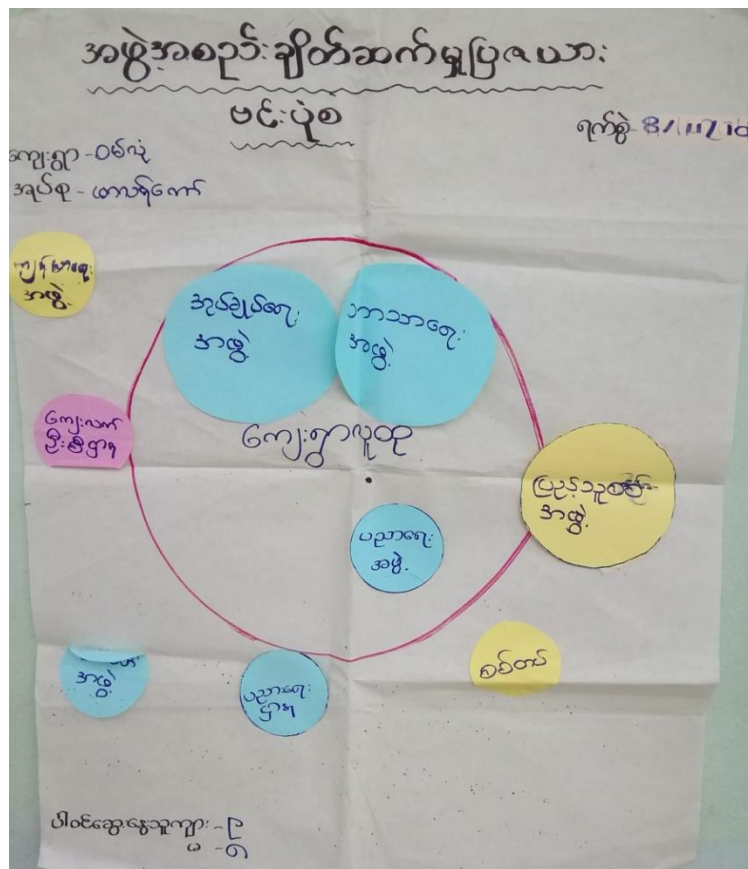 အဖွဲ့အစည်းချိတ်ဆက်မှုပြဇယား
ဗင်းပုံစံ
ရက်စွဲ-
ကျေးရွာ -
အုပ်စု -
ကျန်းမာရေး
အဖွဲ့
အုပ်ချုပ်ရေး
အဖွဲ့
ဘာသာရေး
အဖွဲ့
ကျေးလက်
ဦးစီးဌာန
ကျေးရွာလူထု
ပြည်သူ့စစ်
အဖွဲ့
ပညာရေး
အဖွဲ့
အဖွဲ့
ပညာရေး
ဌာန
စစ်တပ်
ပါဝင်ဆွေးနွေးသူကျား - ၉
မ - ၅